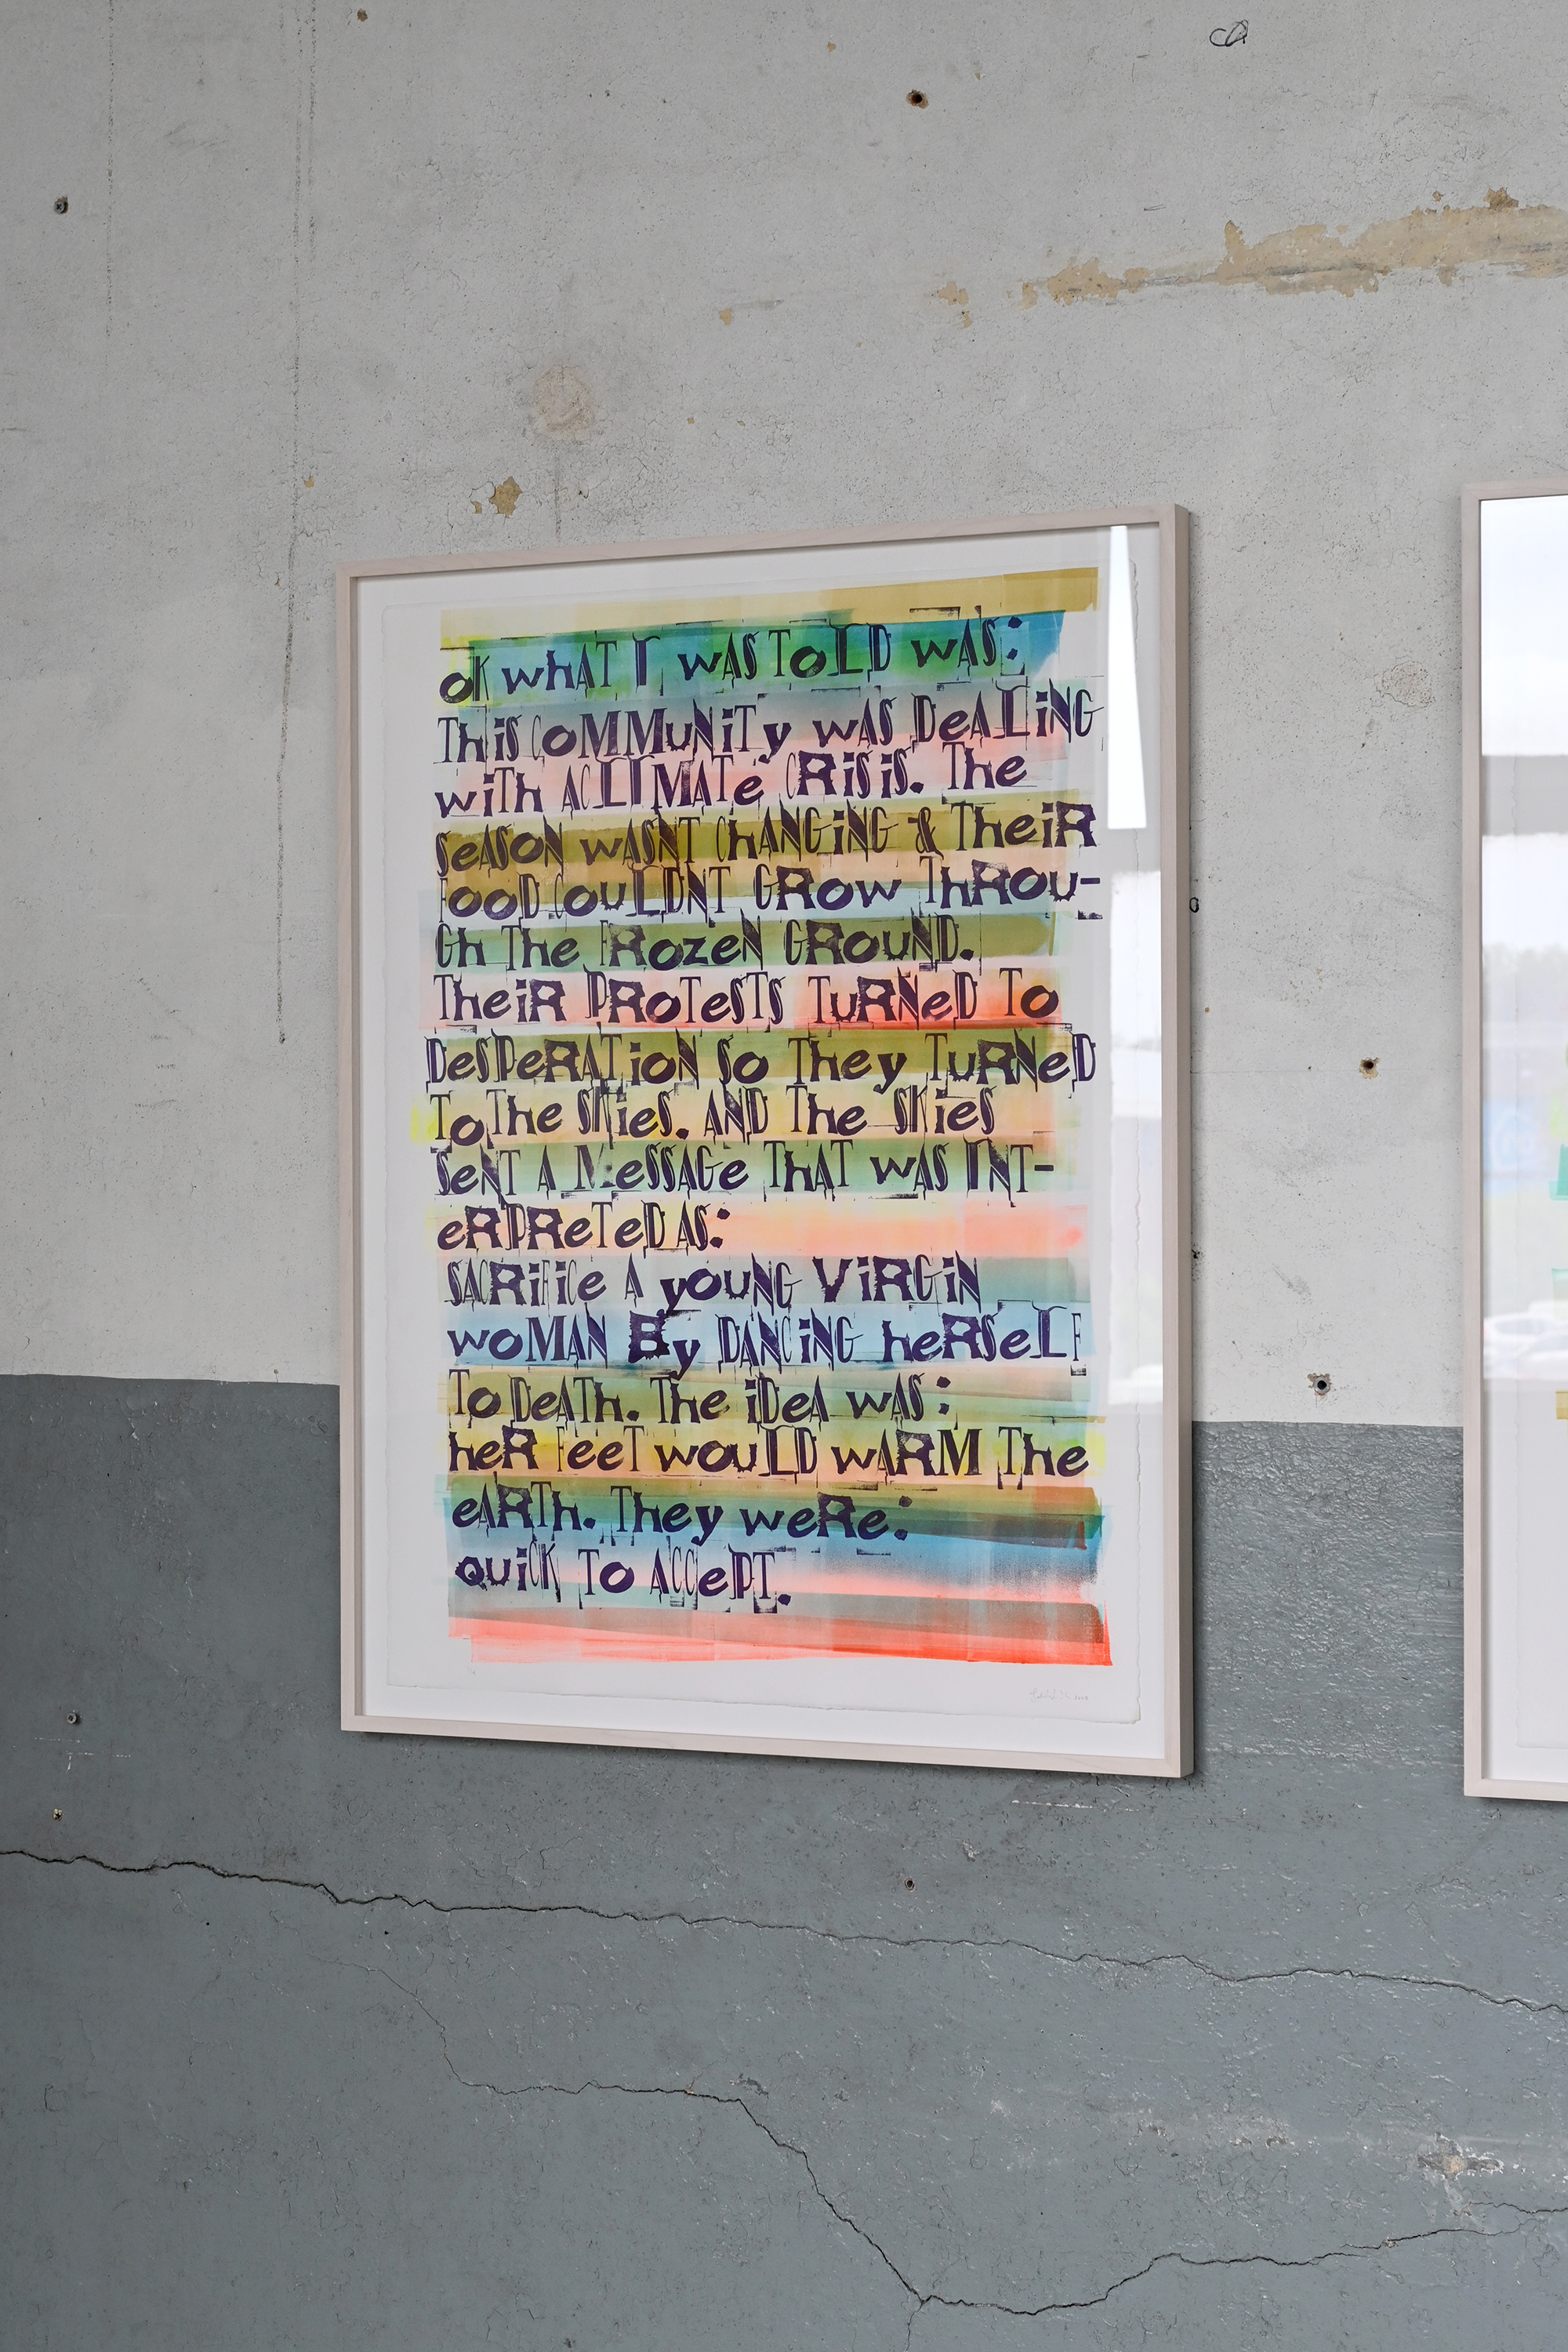 OK WHAT I WAS TOLD WAS:
THIS COMMUNITY WAS DEALING
WITH A CLIMATE CRISIS. THE
SEASON WASNT CHANGING & THEIR
FOOD COULDNT GROW THROU-
GH THE FROZEN GROUND.
THEIR PROTESTS TURNED TO
DESPERATION SO THEY TURNED
TO THE SKIES. AND THE SKIES
SENT A MESSAGE THAT WAS INT-
ERPRETED AS:
SACRIFICE A YOUNG VIRGIN
WOMAN BY DANCING HERSELF
TO DEATH. THE IDEA WAS:
HER FEET WOULD WARM THE
EARTH. THEY WERE:
QUICK TO ACCEPT.